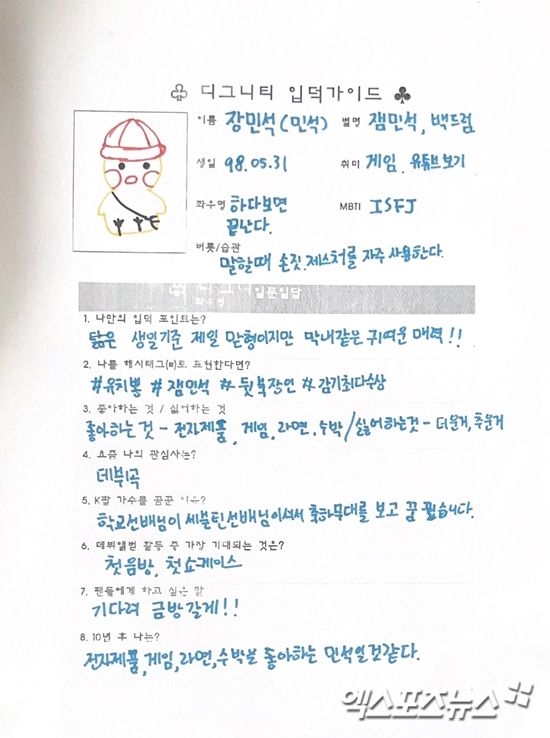 ♧ 디그니티 입덕가이드 ♣
이름 장민석(민석) 별명 잼민석, 백드럼
생일 98.05.31 취미 게임, 유튜브 보기
좌우명 하다보면 MBTI ISFJ
끝난다.
버릇/습관
말할때 손짓.제스처를 자주 사용한다.
디그니티 일문일답
좌우명
1. 나만의 입덕 포인트는?
닮은 생일기준 제일 맏형이지만 막내같은 귀여운 매력!!
2. 나를 해시태그(#)로 표현한다면?
#유치뽕 #잼민석 #뒷북장인 #감기최다수상
3. 좋아하는 것 / 싫어하는 것
좋아하는 것 - 전자제품, 게임, 라면, 수박/싫어하는것 - 더운거, 추운거
4. 요즘 나의 관심사는?
데뷔곡
5. K팝 가수를 꿈꾼 이유?
학교선배님이 세븐틴선배님이셔서 축하무대를 보고 꿈 꿨습니다.
6. 데뷔앨범 활동 중 가장 기대되는 것은?
첫음방, 첫쇼케이스
7. 팬들에게 하고 싶은 말
기다려 금방갈게!!
8. 10년 후 나는?
전자제품,게임,라면,수박을 좋아하는 민석일것같다.
엑스포츠뉴스